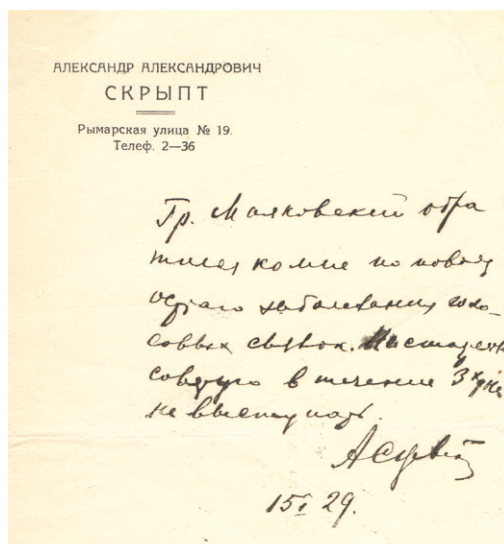 АЛЕКСАНДР АЛЕКСАНДРОВИЧ
СКРЫПТ
Рымарская улица № 19.
Телеф. 2—36
Гр. Маяковский обра
тился ко мне по поводу
острого заболевания голо-
совых связок. Настоятельно
советую в течение 3х дней
не выступать.
15 I 29.